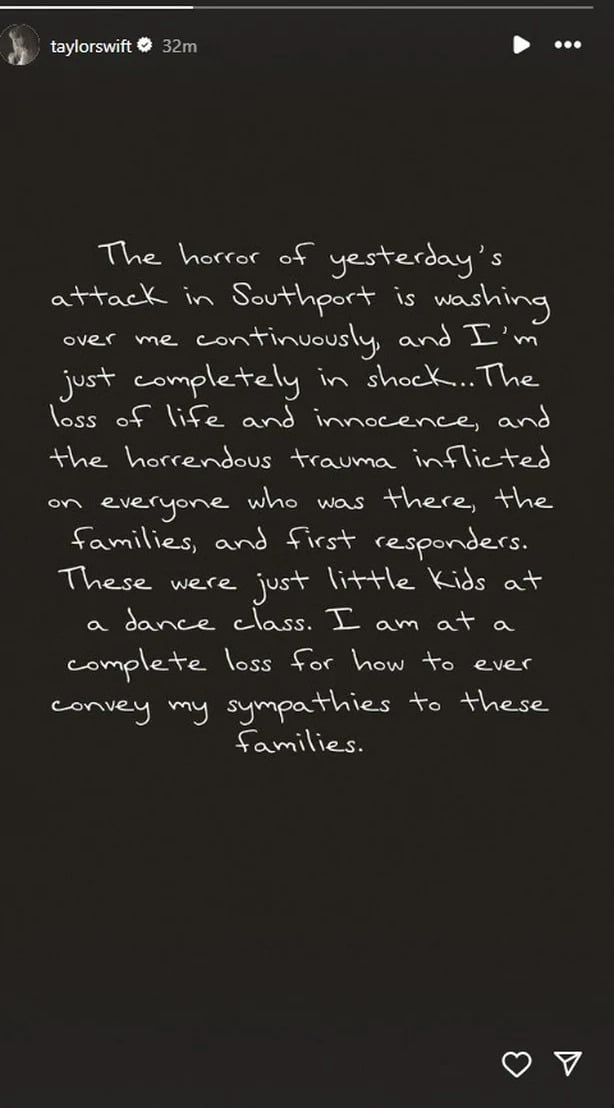 taylorswift 32m
The horror of yesterday's
attack in Southport is washing
over me continuously, and I'm
just completely in shock...The
loss of life and innocence, and
the horrendous trauma inflicted
on everyone who was there, the
families, and first responders.
These were just little kids at
a dance class. I am at a
complete loss for how to ever
convey my sympathies to these
families.